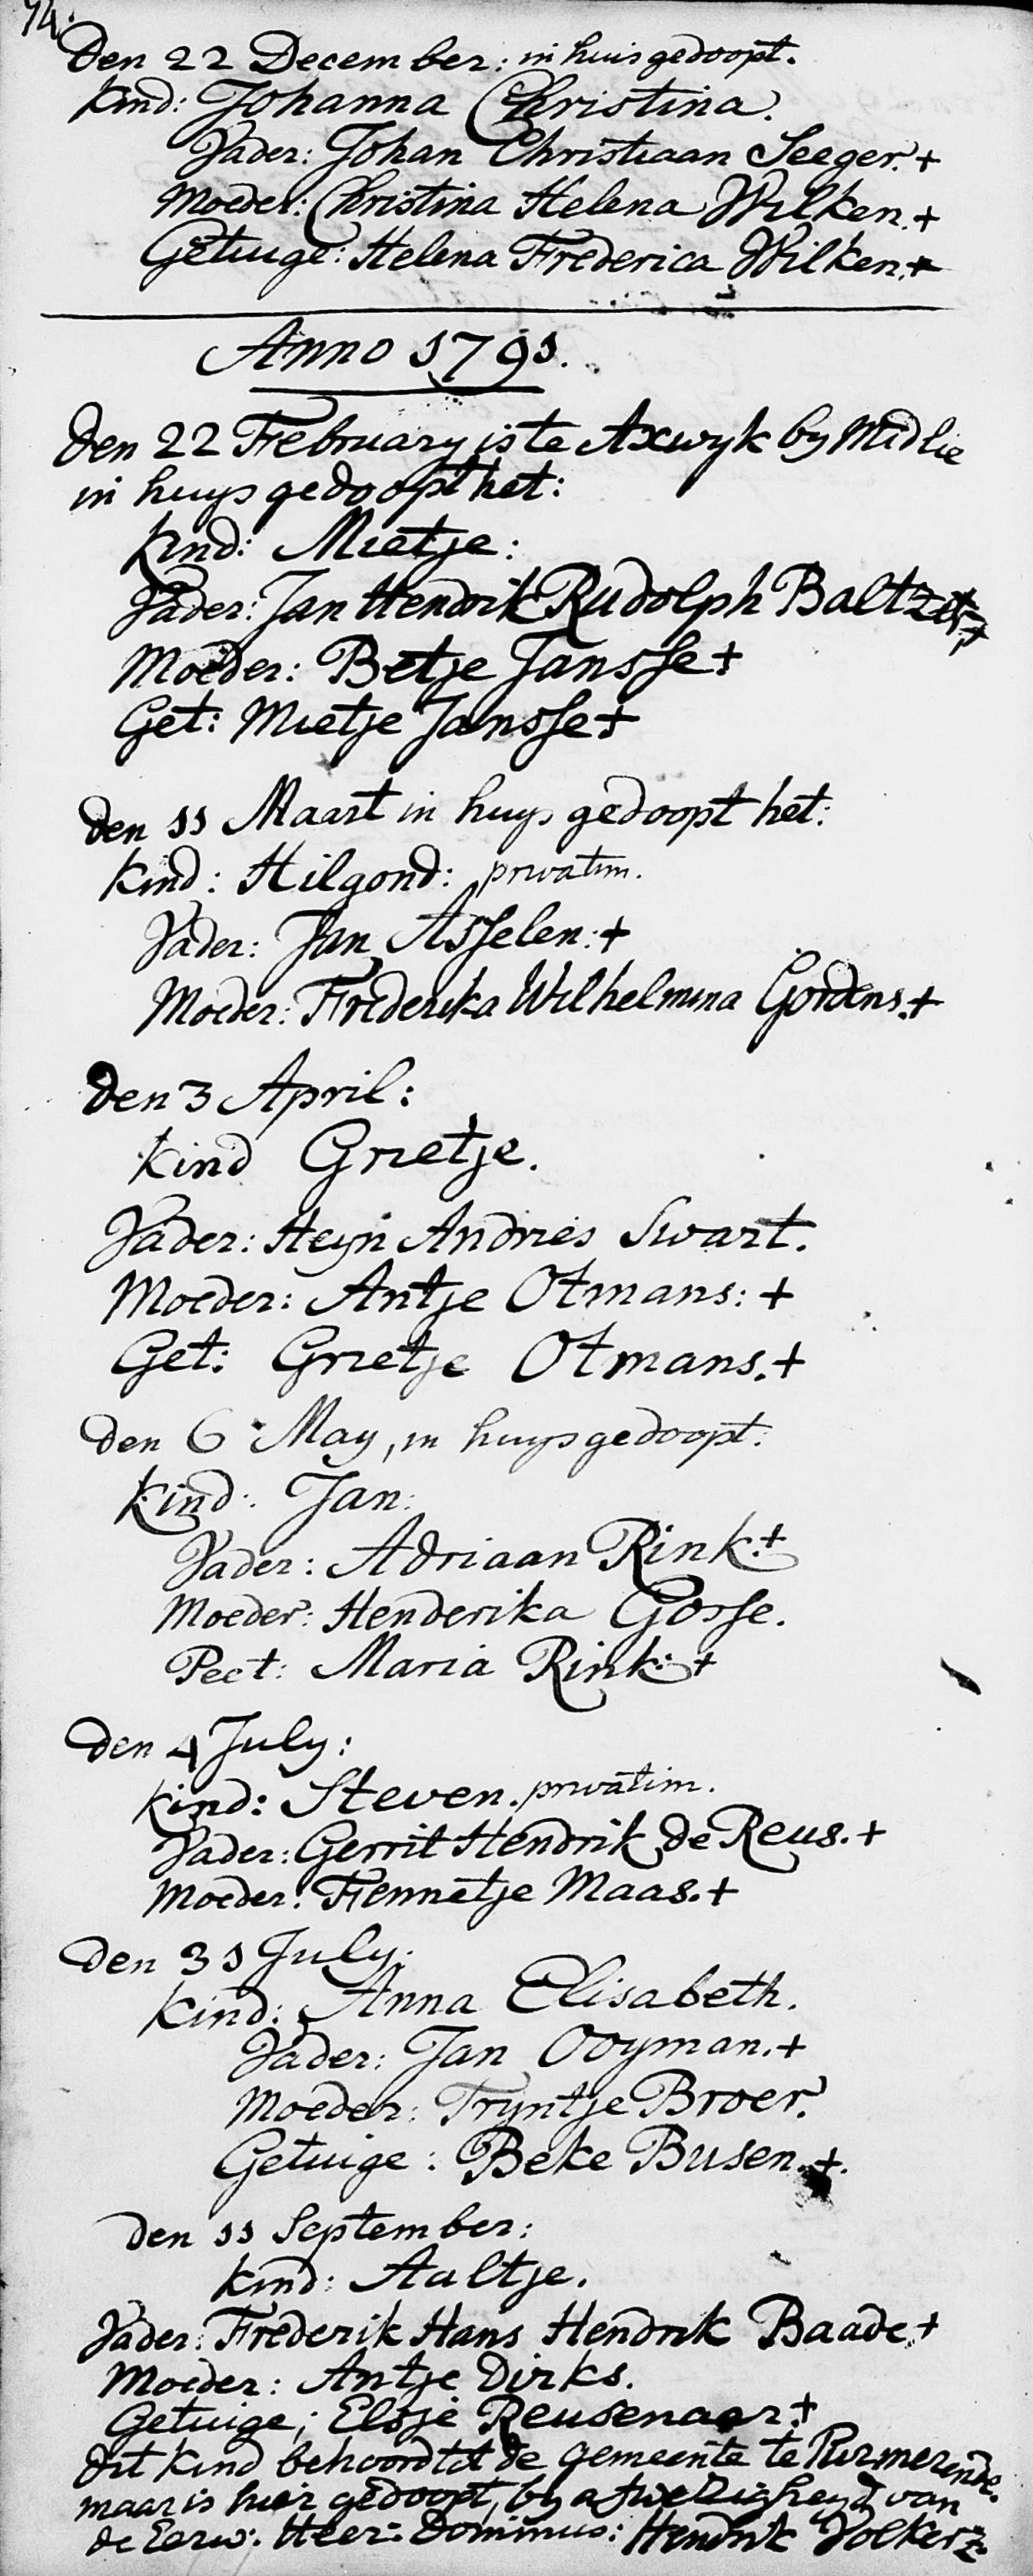 74.
Den 22 December: in huis gedoopt.
Kind: Johanna Christina.
Vader: Johan Christiaan Seeger. +
Moeder: Christina Helena Wilken. +
Getuige: Helena Frederica Wilken. +
Anno 1791.
Den 22 February is te Axwyk by Midlie
in huys gedoopt het:
Kind: Mietje:
Vader: Jan Hendrik Rudolph Baltzer +
Moeder: Betje Jansse +
Get: Mietje Jansse +
den 11 Maart in huys gedoopt het:
Kind: Hilgond: privatim.
Vader: Jan Asselen: +
Moeder: Frederika Wilhelmina Gordens. +
Den 3 April:
Kind Grietje.
Vader: Heyn Andries Swart.
Moeder: Antje Otmans: +
Get: Grietje Otmans. +
den 6 May, in huys gedoopt:
Kind: Jan:
Vader: Adriaan Rink. +
Moeder: Henderika Gosse.
Peet: Maria Rink: +
den 4 July:
Kind: Steven. privatim.
Vader: Gerrit Hendrik de Reus. +
Moeder: Fennetje Maas. +
den 31 July:
Kind: Anna Elisabeth.
Vader: Jan Ooyman. +
Moeder: Tryntje Broer.
Getuige: Beke Busen. +.
den 11 September:
Kind: Aaltje.
Vader: Frederik Hans Hendrik Baade. +
Moeder: Antje Dirks.
Getuige; Elsje Reusenaar +
dit kind behoordt tot de gemeente te Purmerende.
maar is hier gedoopt, by afwezigheyd van
de Eerw: Heer: Dominus: Hendrik Volkersz